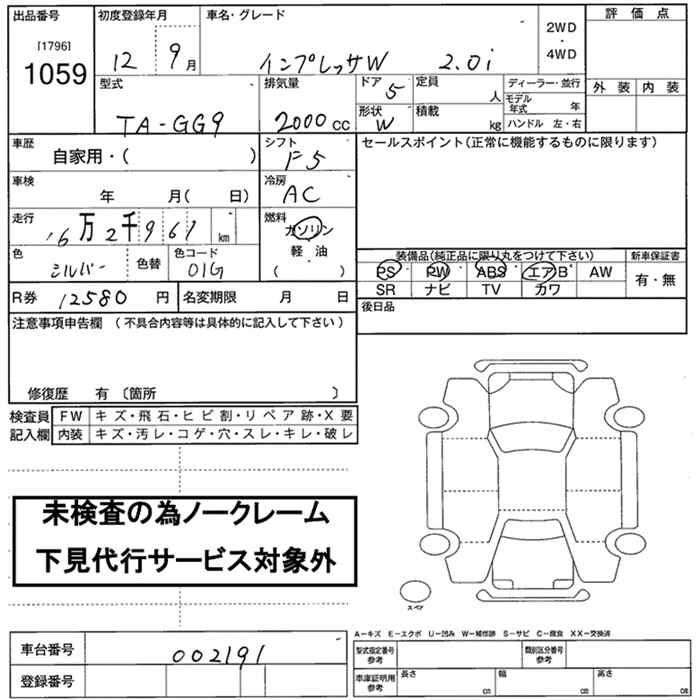 出品番号
[1796]
1059
初度登録年月
12 9月
車名・グレード
インプレッサW 2.0i
2WD
・
4WD
評価点
外装 内装
型式
TA-GG9
排気量
2000cc
ドア 5
形状 W
定員 人
積載 kg
ディーラー・並行
モデル年式 年
ハンドル 左・右
車歴
自家用・( )
シフト
F5
セールスポイント(正常に機能するものに限ります)
車検
年 月( 日)
冷房
AC
走行
16万2千961km
燃料
ガソリン
軽・油
( )
色
シルバー
色替
色コード
01G
装備品(純正品に限り丸をつけて下さい)
PS PW ABS エアB AW
SR ナビ TV カワ
新車保証書
有・無
R券 12580円
名変期限 月 日
後日品
注意事項申告欄 (不具合内容等は具体的に記入して下さい)
修復歴 有 〔箇所 〕
検査員記入欄
FW キズ・飛石・ヒビ割・リペア跡・X要
内装 キズ・汚レ・コゲ・穴・スレ・キレ・破レ
未検査の為ノークレーム
下見代行サービス対象外
スペア
A−キズ E−エクボ U−凹み W−補修跡 S−サビ C−腐食 XX−交換済
車台番号 002191
登録番号
型式指定番号参考
類別区分番号参考
車庫証明用参考
長さ cm 幅 cm 高さ cm